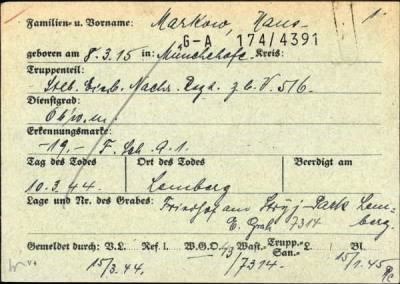 Familien- u. Vorname: Markow, Hans 1.
G-A 174/4391
geboren am 8.3.15 in: Münchehofe Kreis:
Truppenteil:
Stab Nachr. Regt. z.b.V. 516
Dienstgrad:
Erkennungsmarke:
-19-
Tag des Todes Ort des Todes Beerdigt am
10.3.44. Lemberg
Lage und Nr. des Grabes: Friedhof am Stryj-Park Lem-
E. Grab 7314 berg.
Gemeldet durch: V.L. Ref. I. W.G.O. 43 Wast-Trupp.-L. Bl.
San.-
15/3.44. /7314. 15/1.45